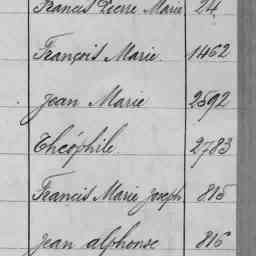 Francis Pierre Marie 24
François Marie. 1462
Jean Marie 2592
Théophile. 2783
Francis Marie Joseph 815
Jean alphonse 816